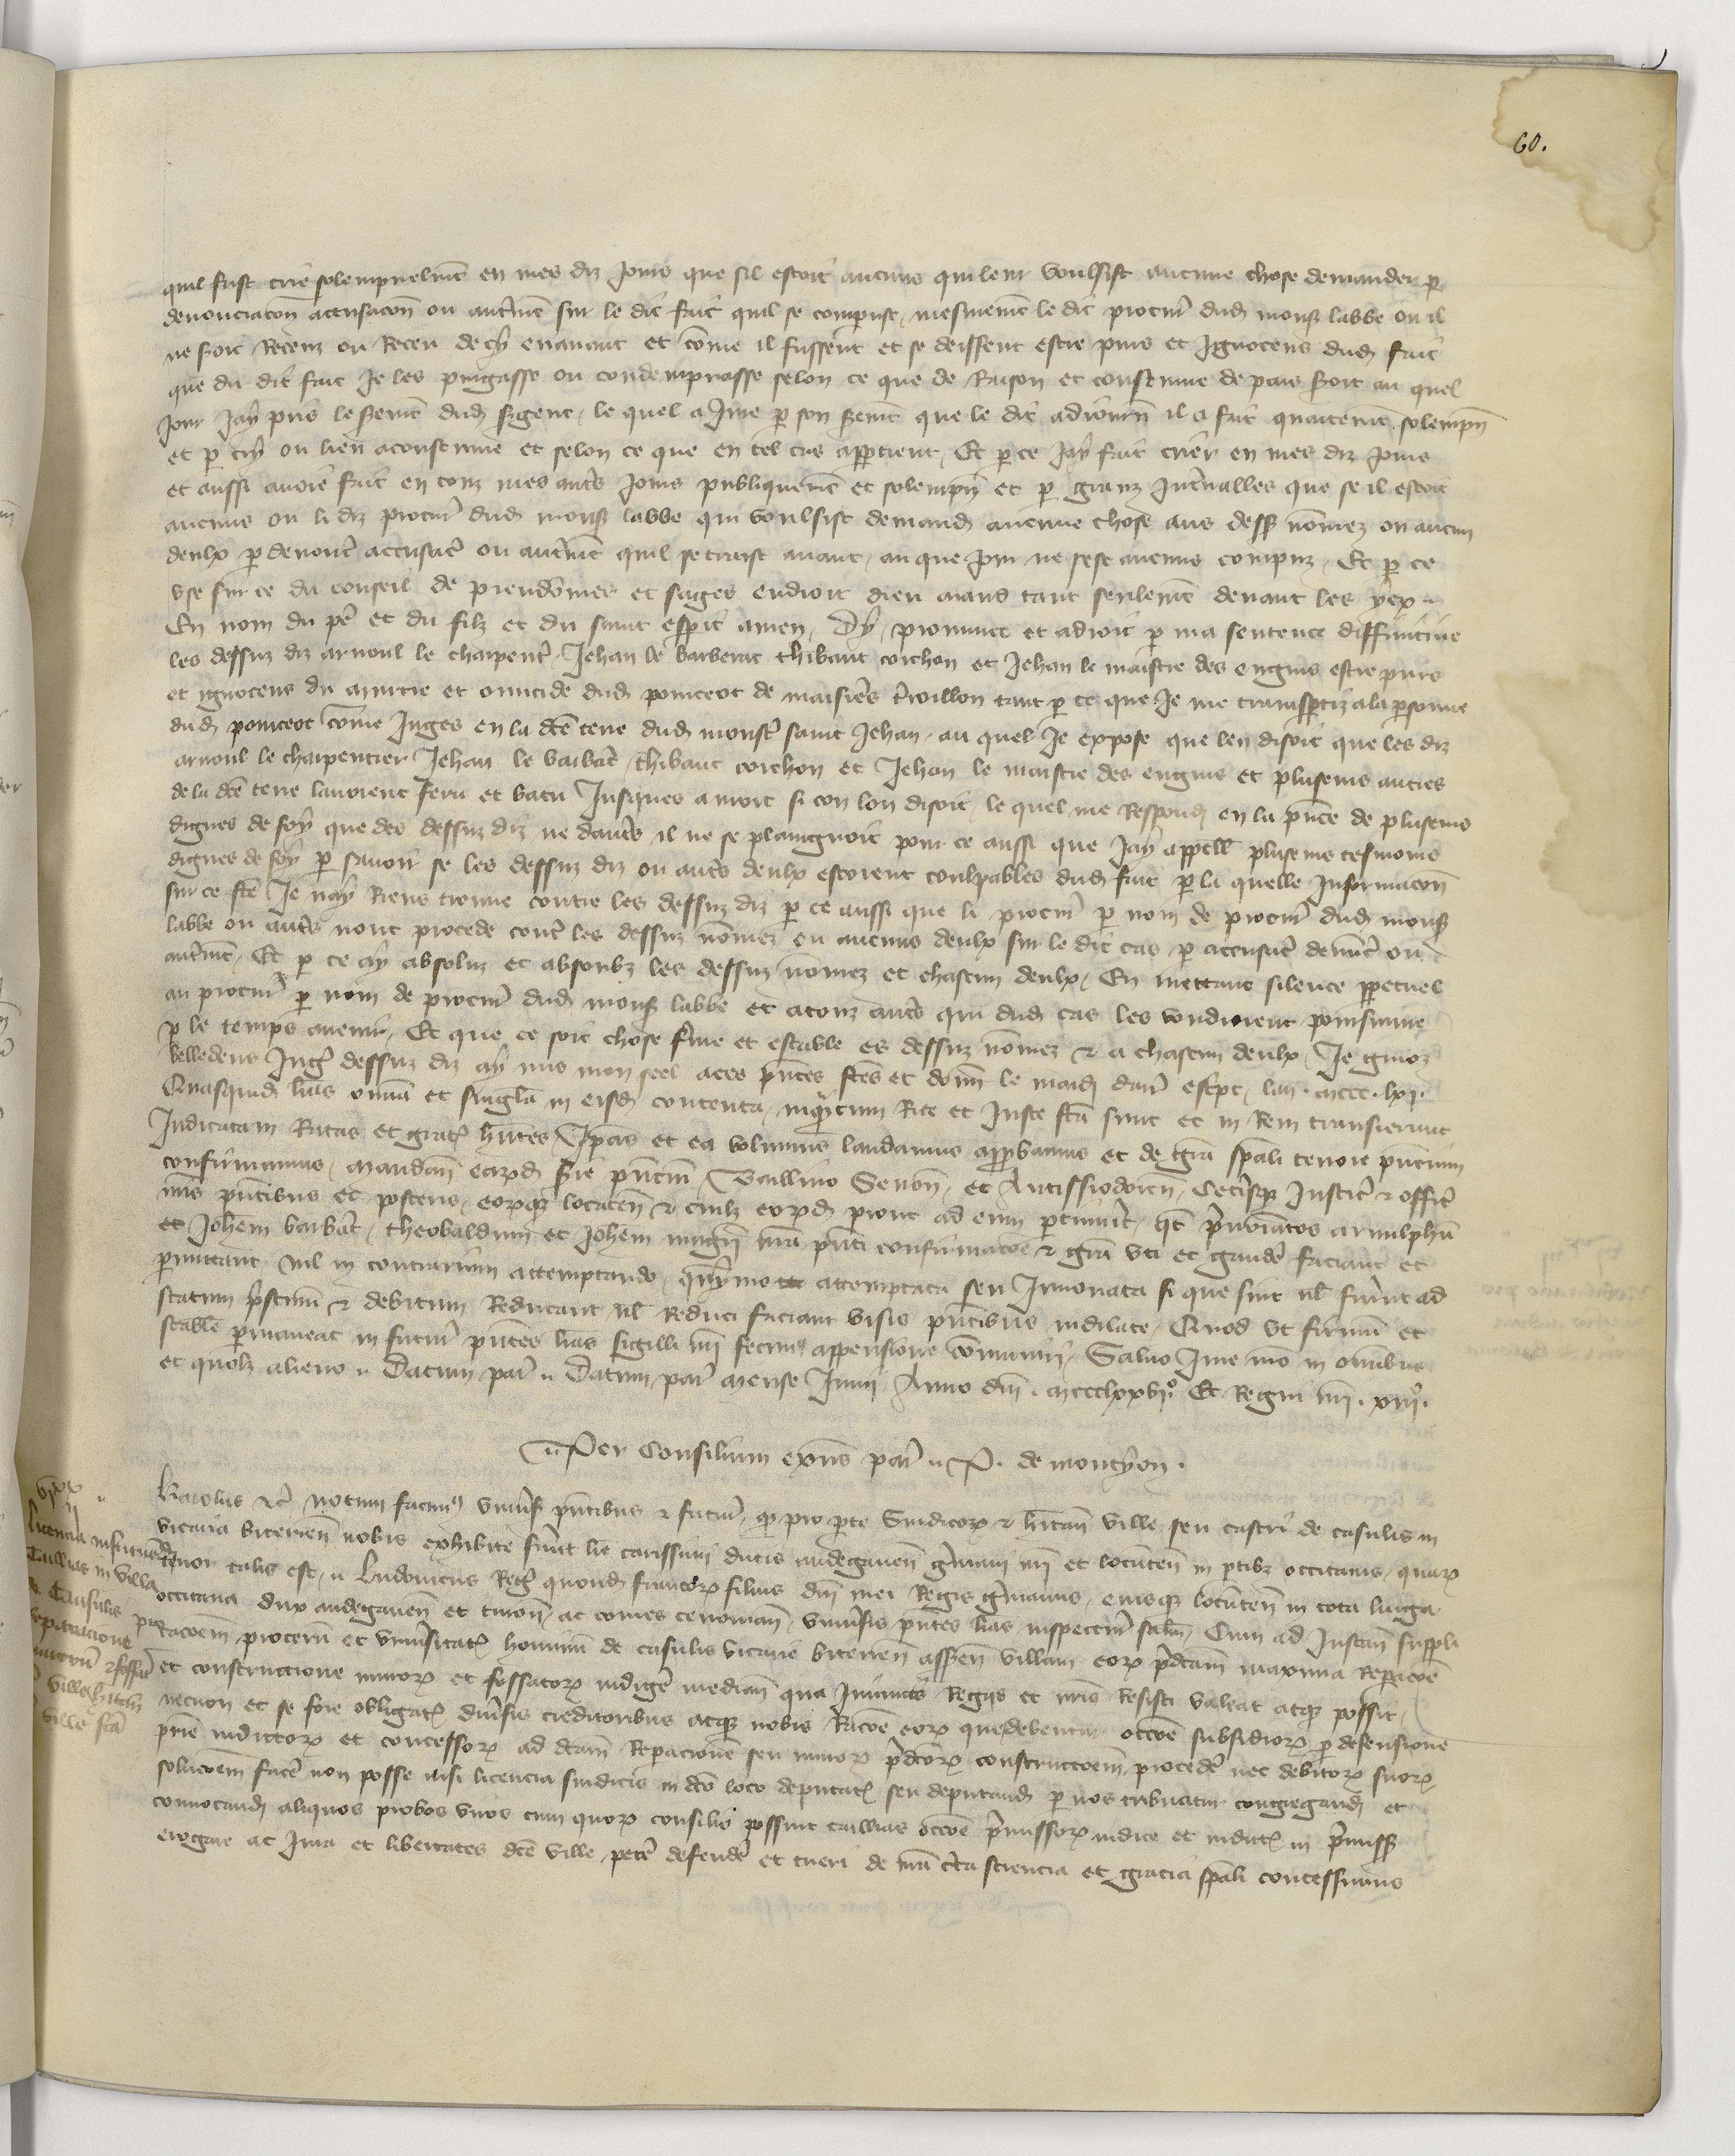 60.
quil fust crie solempnelmt en mes diz jours que sil estoit aucuns qui leur voulsist aucune chose demander p
denonciacon accusacon ou autremt sur le dit fait quil se comparust, mesmemt le dit procur dud mons labbe ou il
ne soit Receuz ou Receu de cy enavant et come il fussent et se deissent estre purs et Ignocens dud fait
que du dit fait Je les purgasse ou condempnasse selon ce que de Raison et coustume de pais soit au quel
jour Jay pris le sermt dud sgent, le quel a Jure p son sermt que le dit adiourn il a fait quaitemt solempn
et p cry ou lieu acoustume et selon ce que en tel cas appartient, Et p ce Jay fait crier en mes diz jours
et aussi avoie fait en touz mes autrs jours publiquemt et solempn et p granz Intervalles que se il estoit
aucuns ou li diz procur dud mons labbe qui voulsist demand aucune chose aus dess nommez ou aucun
deulx p denonc accusac ou autremt quil se traist avant, au que jour ne sest aucuns compuz, Et p ce
use sur ce du conseil de preudomes et sages endroit dieu avans tant seulemt devant les yex
En nom du pe et du filz et du saint esprit amen, Dy, pronunce et adroit p ma sentence diffinitive
les dessuz diz arnoul le charpent, Jehan le barberat thibaut corchon et Jehan le maistre des engins estre purs
et ygnocens du murtre et omicide dud ponceot de maisieres tant p ce que Je me transportiz a la psonne
dud ponceot come Juges en la dce terre dud monst saint Jehan, au quel Je expose que len disoit que les diz
arnoul le charpentier Jehan le barbat, thibaut corchon et Jehan le maistre des engins et pluseurs autres
de la dce terre lavoient feru et batu Jusques a mort si con lon disoit, le quel me Respond en la pnce de pluseurs
dignes de foy que des dessuz diz ne dautrs il ne se plaingnoit pour ce aussi que Jay appelle pluseurs tesmoins
dignes de foy p savoir se les dessuz diz ou autrs deulx estoient coulpables dud fait p la quelle Informacon
sur ce fce Je nay Riens trouve contre les dessuz diz p ce aussi que li procur p nom de procur dud mons
labbe ou autrs nont procede contr les dessuz nommez ou aucuns deulx sur le dit cas p accusac denunc ou
autremt, Et p ce ay absoluz et absoubz les dessuz nommez et chascun deulx, En mettant silence ppetuel
au procur p nom de procur dud mons labbe et a touz autrs qui dud cas les voudroient poursuivre
p le temps avenir, Et que ce soit chose fme et estable es dessuz nommez et a chascun deulx, Je
belledens Jug dessuz diz ay mis mon seel a ces pntes fces et donn le mardi davr escpt, lan . mccc . lxj.
Quasquid lras omnia et singla in eisd contenta, inquantum Rite et Juste fca sunt et in Rem transierunt
Judicatam Ratas et grat hntes Ipas et ea volumus laudamus approbamus et de gra spali tenore pntium
confirmamus, mandan eard sie pntium, Baillivo Senon, et Antissiodoren, Cetisq Justic et offic
nris pntibus et posteris, eorq locaten et cuilz eord prout ad eum ptinuit, qt pnoiatos arnulphu
et Johem barbat, theobaldum et Johem magri nra pnti confirmacoe et gra uti et gaudere faciant et
pmittant, nil in contrarium attemptando, quinymo attemptata seu Jnnovata si que sint vel fuint ad
statum pstinu et debitum Reducant vel Reduci faciant visis pntibus indilate, Quod ut firmu et
stabile pmaneat in futur pntes lras sigilli nri fecim appensione comuniri, Salvo Jure nro in omnibus
et quolz alieno " Datum par " Datum par mense Junii Anno dni . mccclxxvjo Et Regni nri . xiijo.
" Per Consilium exns par " P. de montyon .
vjxx ij
licencia inponendi
Taillias in villa
de Casulis pro
reparacione
murorum et fossator
ville
ville fca
Karolus etc Notum facim univsis pntibus et futur, q pro pte Sindicor et hitan ville seu castri de casulis in
vicaria biterren nobis exhibite fuert lre carissimi ducis andegaven gmani nri et locuten in ptibz occitanis, quar
tenor talis est, " Ludovicus Reg quond francor filius dni mei Regis gmanus, eiusq locuten in tota lingua
occitana dux andegaven et turon, ac comes cenoman, univsis pntes lras inspectur saltm, Cum ad Jnstan suppli
cacoem procerum et univsitat hominum de casulis vicarie biterren asseren villam eor pdcam maxima Repacoe
et constructione muror et fossator indigere median qua Jnimicis Regiis et nris Resisti valeat atq possit,
necnon et se fore obligat divsis creditoribus atq nobis Racoe eor que debentur occoe subsidior p defensione
prie indictor et concessor ad dcam Repacionem seu muror pdcor constructoem, procedere nec debitor suor
solucoem facere non posse nisi licencia sindicis in dco loco deputat seu deputand p nos tribuatur congregand et
convocand aliquos probos viros cum quor consilio possint taillias occoe pmissor indice et indict in pmiss
erogare ac Jura et libertates dce ville petere defendere et tueri de nra cta sciencia et gracia spali concessimus